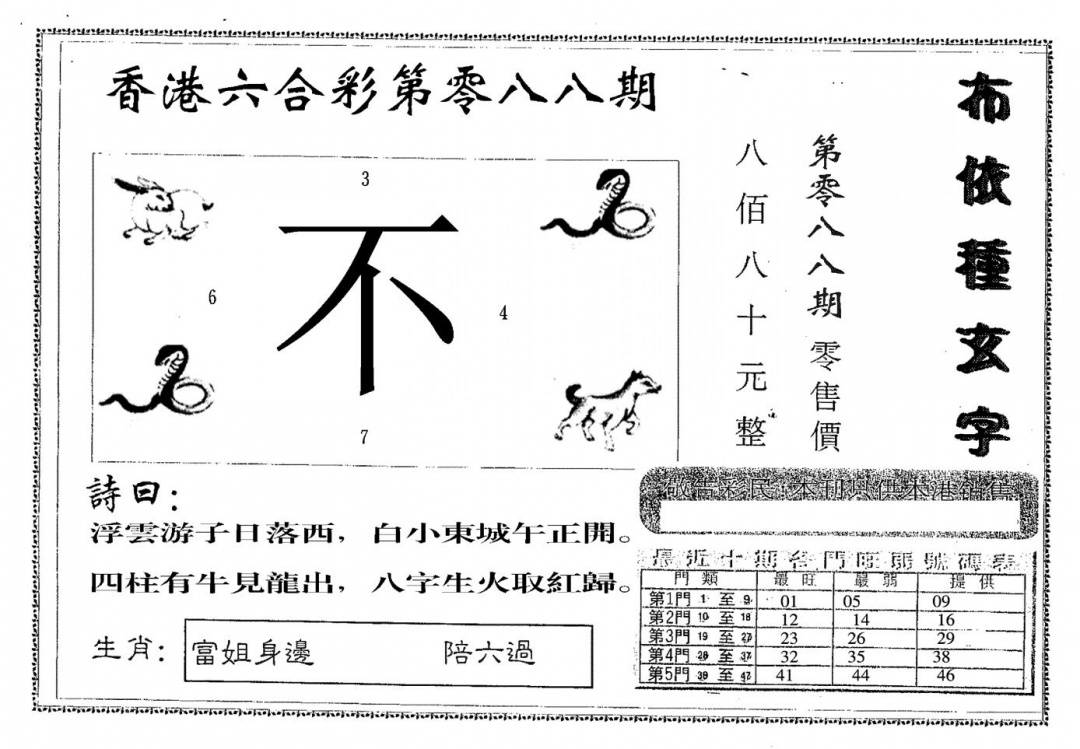 香港六合彩第零八八期
布依種玄字
第零八八期零售價
八佰八十元整
3
不
6
4
7
詩曰：
浮雲游子日落西，白小東城午正開。
四柱有牛見龍出，八字生火取紅歸。
生肖： 富姐身邊 陪六過
敬告彩民：本刊只供本港銷售
最近十期各門旺弱號碼表
門類 最旺 最弱 提供
第1門 1 至 9 01 05 09
第2門 10 至 18 12 14 16
第3門 19 至 27 23 26 29
第4門 28 至 37 32 35 38
第5門 38 至 47 41 44 46